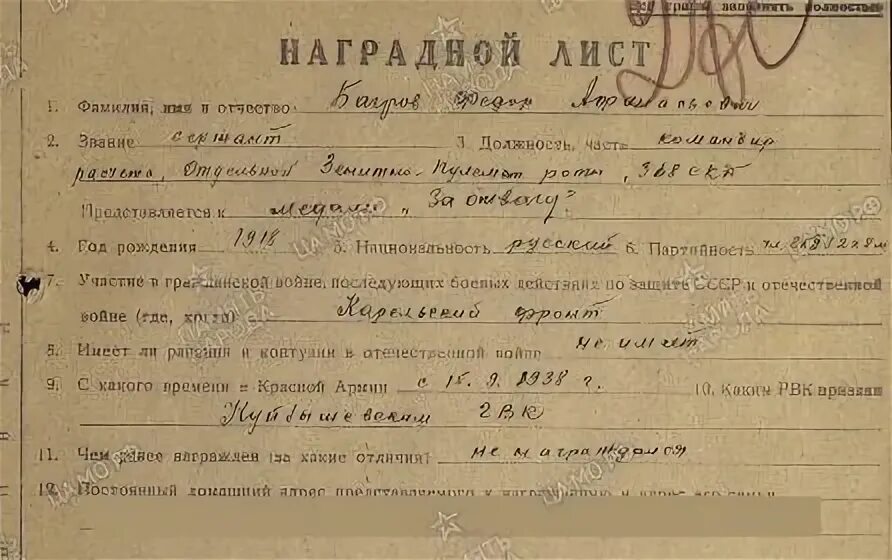 заполнять полностью
НАГРАДНОЙ ЛИСТ
1. Фамилия, имя и отчество Багров Федор
2. Звание сержант 3. Должность, часть командир
расчета, Отдельной Зенитно-Пулемет роты, 368 СКП
Представляется к медали „За отвагу"
4. Год рождения 1918 5. Национальность русский 6. Партийность
7. Участие в гражданской войне, последующих боевых действиях по защите СССР и отечественной
войне (где, когда) Карельский фронт
8. Имеет ли ранения и контузии в отечественной войне не имеет
9. С какого времени в Красной Армии с 15.9.1938 г. 10. Каким РВК призван
Куйбышевским ГВК
11. Чем ранее награжден (за какие отличия) не награждался
12. Постоянный домашний адрес представляемого к награждению и адрес его семьи